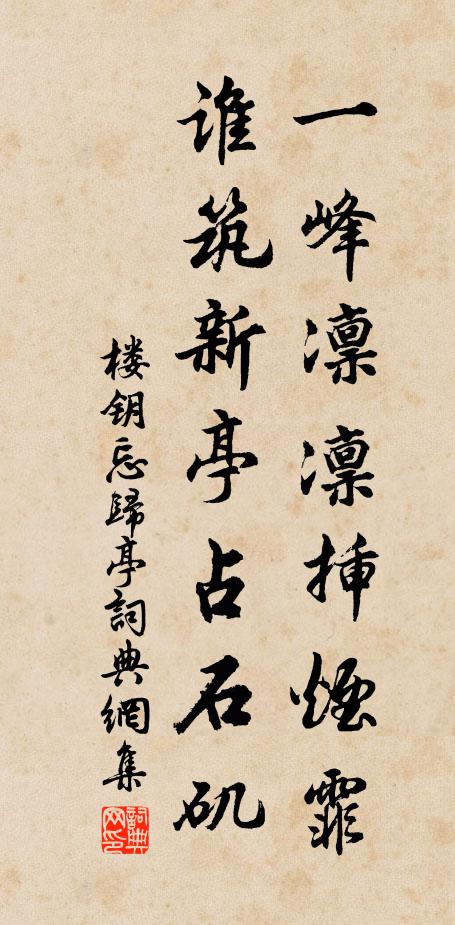 一峰凛凛挿煙霏
谁筑新亭占石矶
楼钥忘歸亭詞典網集
詞典网印